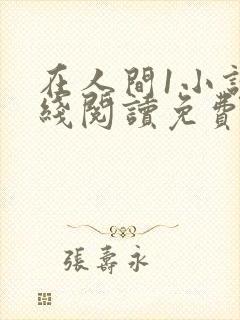 在人間1小說
綫閱讀免費
張壽永